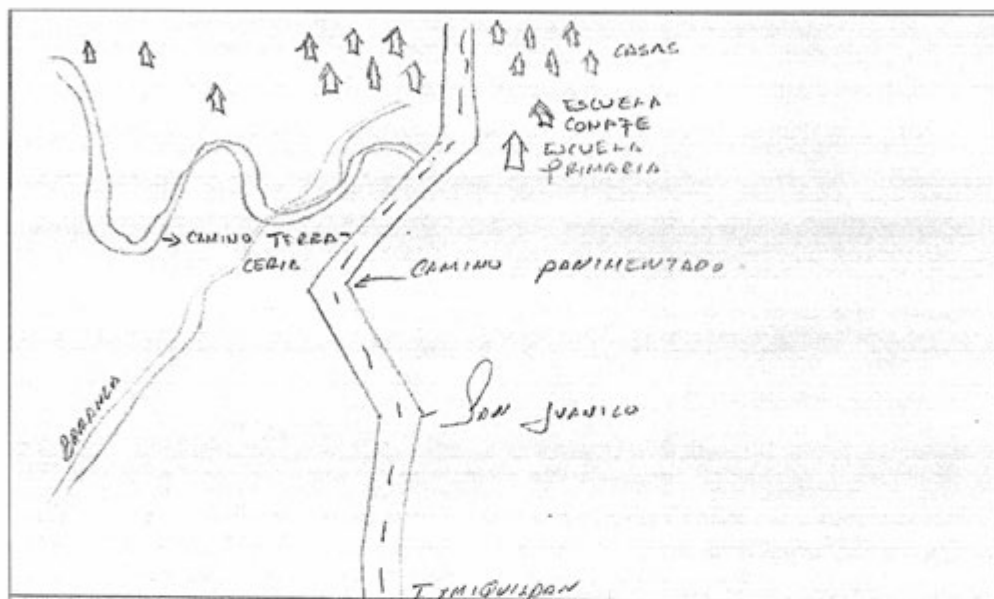 CASAS
ESCUELA
CONAFE
ESCUELA
PRIMARIA
CAMINO TERRA-
CERIA
CAMINO PAVIMENTADO.
BARRANCA
SAN JUANICO
IXMIQUILPAN